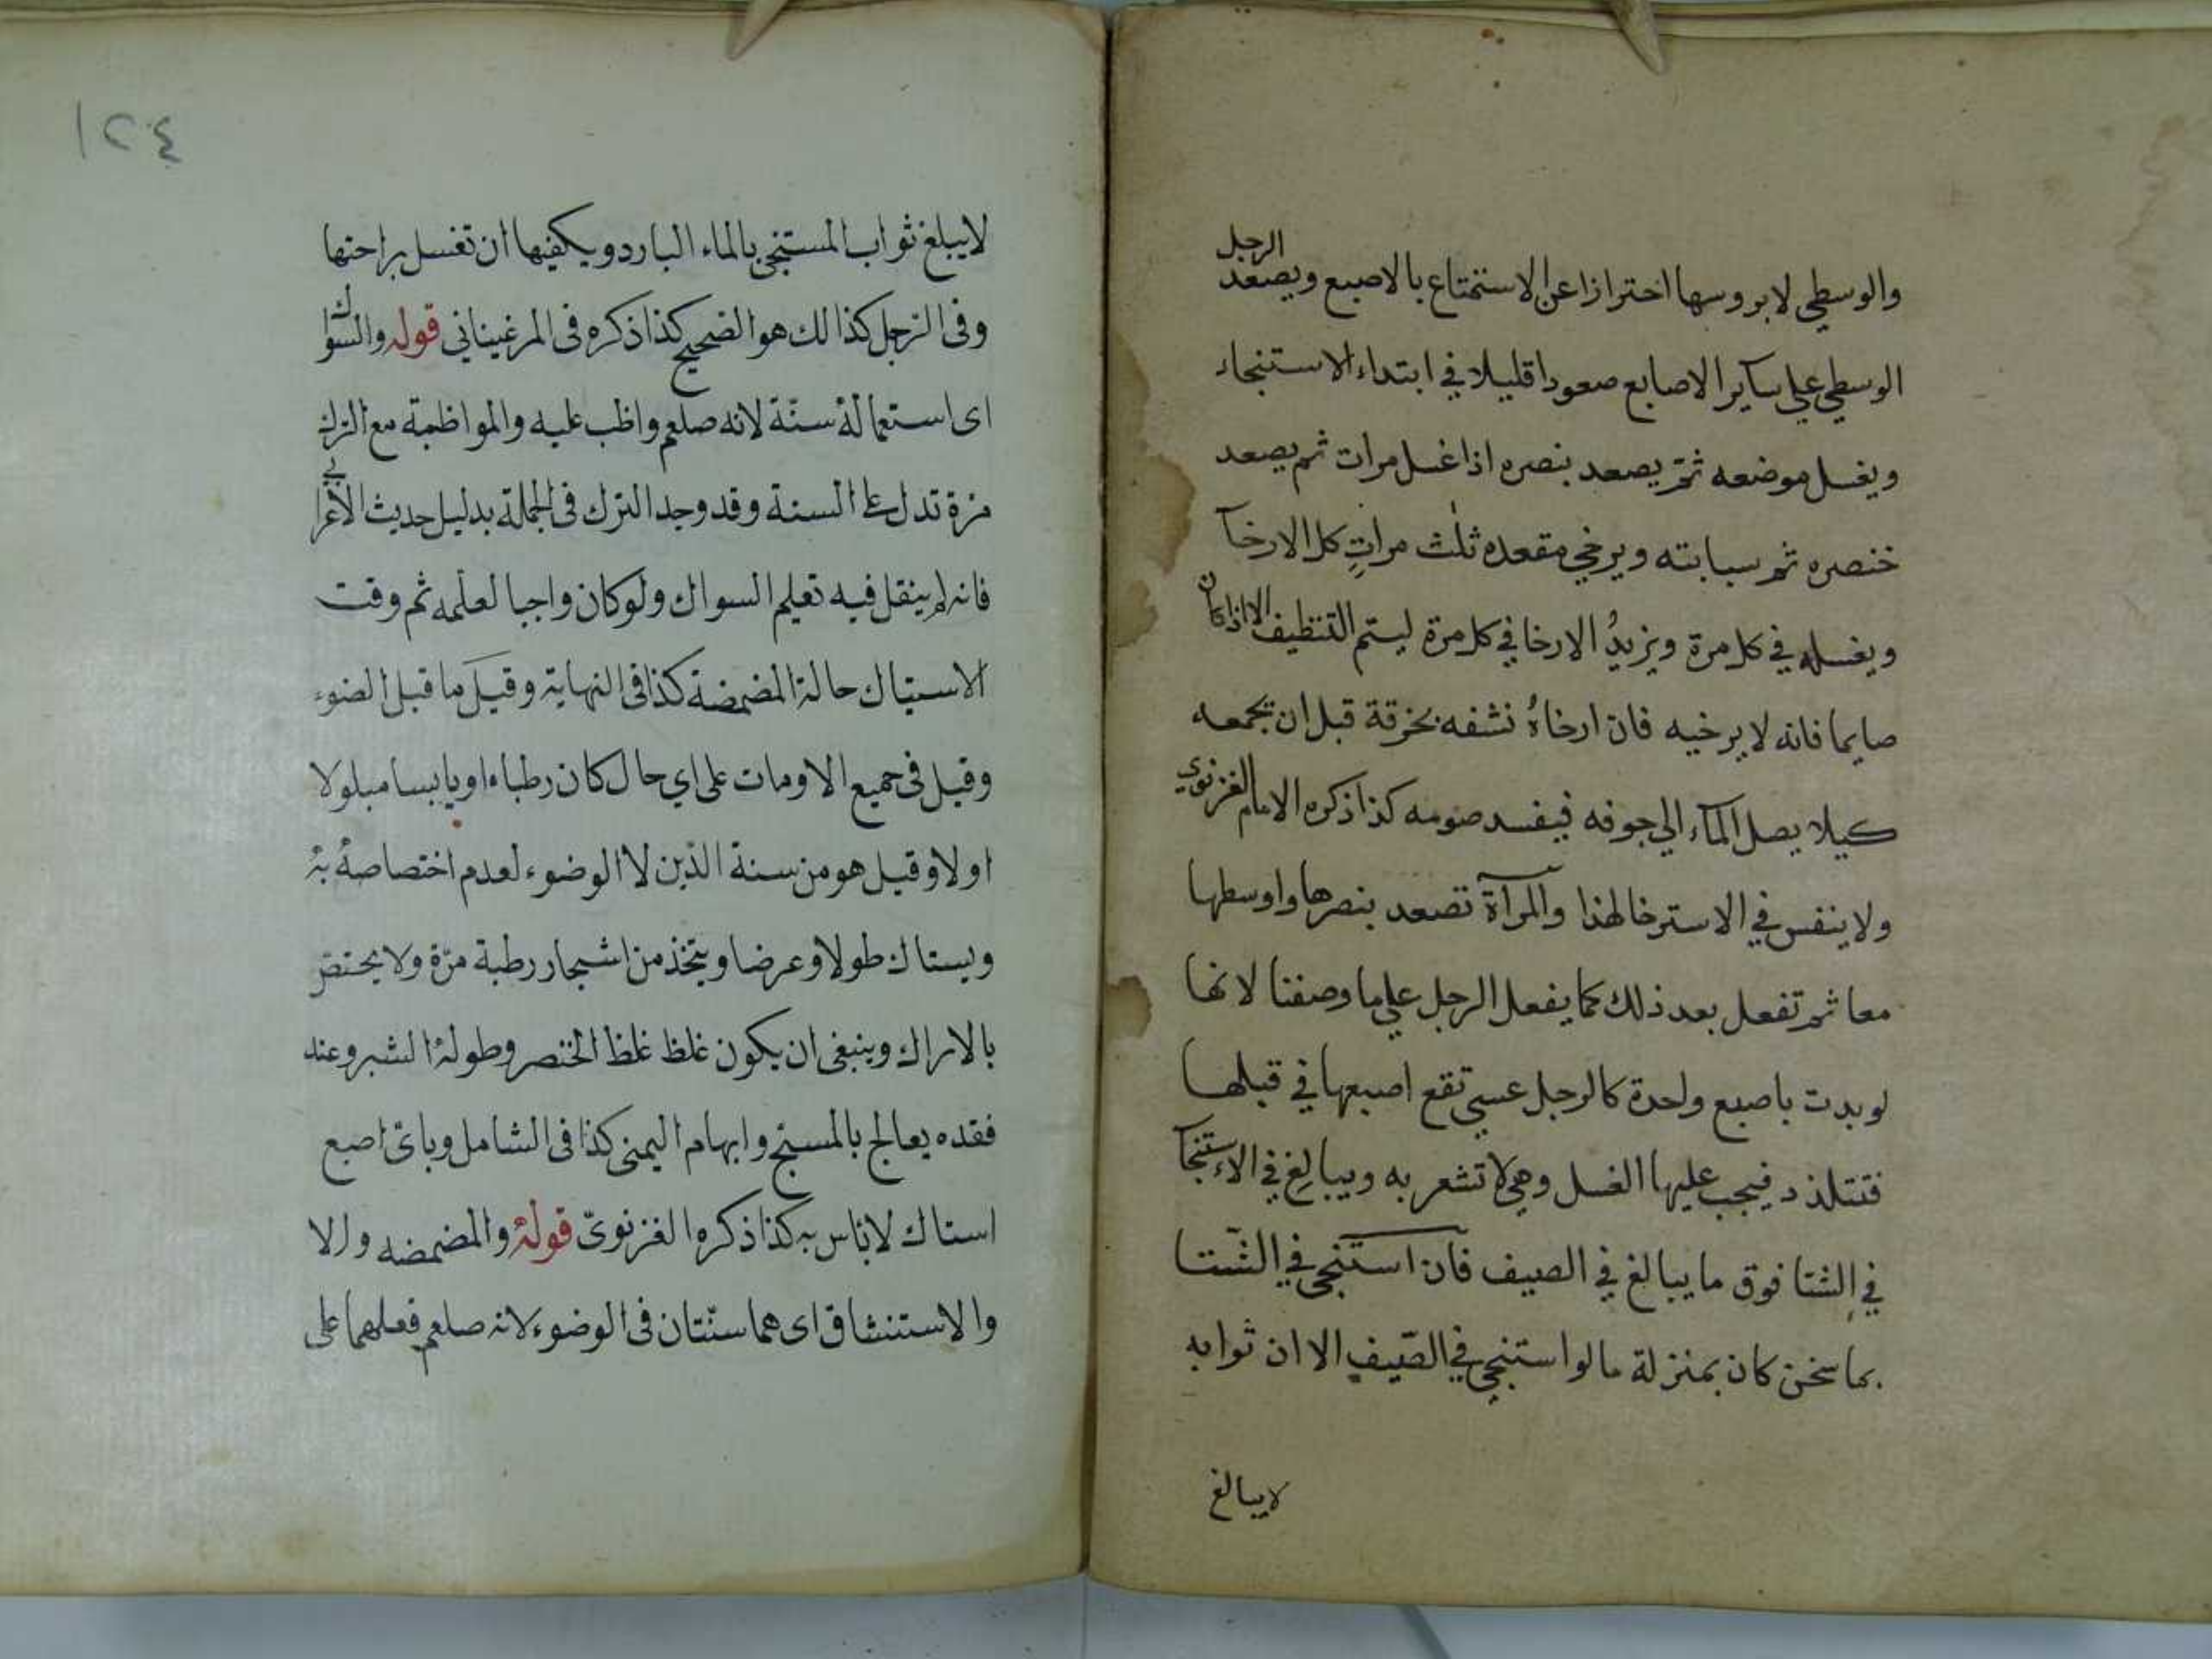 والوسطى لا بروسها احترازا عن الاستمتاع بالاصبع ويصعد الرجل
الوسطي علي ساير الاصابع صعودا قليلا في ابتداء الاستنجاء
ويغسل موضعه ثمّ يصعد بنصره اذا غسل مرات ثم يصعد
خنصره ثم سبابته ويرخي مقعده ثلث مراتٍ كل الارخآ
ويغسله في كل مرة ويزيدُ الارخا في كل مرة ليتم التنظيف الا اذا كان
صايما فانه لا يرخيه فان ارخاهُ نشفه بخرقة قبل ان يجمعه
كيلا يصل المآء الي جوفه فيفسد صومه كذا ذكره الامام الغزنوي
ولا ينفس في الاسترخا لهذا والمرآة تصعد بنصرها واوسطها
معا ثم تفعل بعد ذلك كما يفعل الرجل علي ما وصفنا لانها
لو بدت باصبع واحدة كالرجل عسي تقع اصبعها في قبلها
فتتلذد فيجب عليها الغسل وهي لا تشعر به ويبالغ في الاستنجآ
في الشتا فوق ما يبالغ في الصيف فان استنجي في الشتا
بما سخن كان بمنزلة ما لو استنجي في الصّيف الا ان ثوابه
لا يبالغ
١٢٤
لا يبلغ ثواب المستنجى بالماء البارد ويكفيها ان تغسل براحتها
وفى الرجل كذالك هو الصحيح كذا ذكره فى المرغيناني قوله والسّواك
اى استعمالهُ سنّة لانه صلعم واظب عليه والمواظبة مع الترك
مرة تدل على السنة وقد وجد الترك فى الجملة بدليل حديث الاعرابي
فانه لم ينقل فيه تعليم السواك ولو كان واجبا لعلمه ثم وقت
الاستياك حالة المضمضة كذا فى النهاية وقيل ما قبل الضوء
وقيل فى جميع الاومات على اي حال كان رطباء او يابسا مبلولا
اولا وقيل هو من سنة الدّين لا الوضوء لعدم اختصاصهُ بهُ
ويستاك طولا وعرضا ويتخذ من اشجار رطبة مرّة ولا يختص
بالاراك وينبغى ان يكون غلظ غلظ الخنصر وطولهُ الشبر وعند
فقده يعالج بالمسبح وابهام اليمنى كذا فى الشامل وباىّ اصبع
استاك لا باس به كذا ذكره الغزنوىّ قولهُ والمضمضه والا
والاستنشاق اى هما سنّتان فى الوضوء لانه صلعم فعلهما على